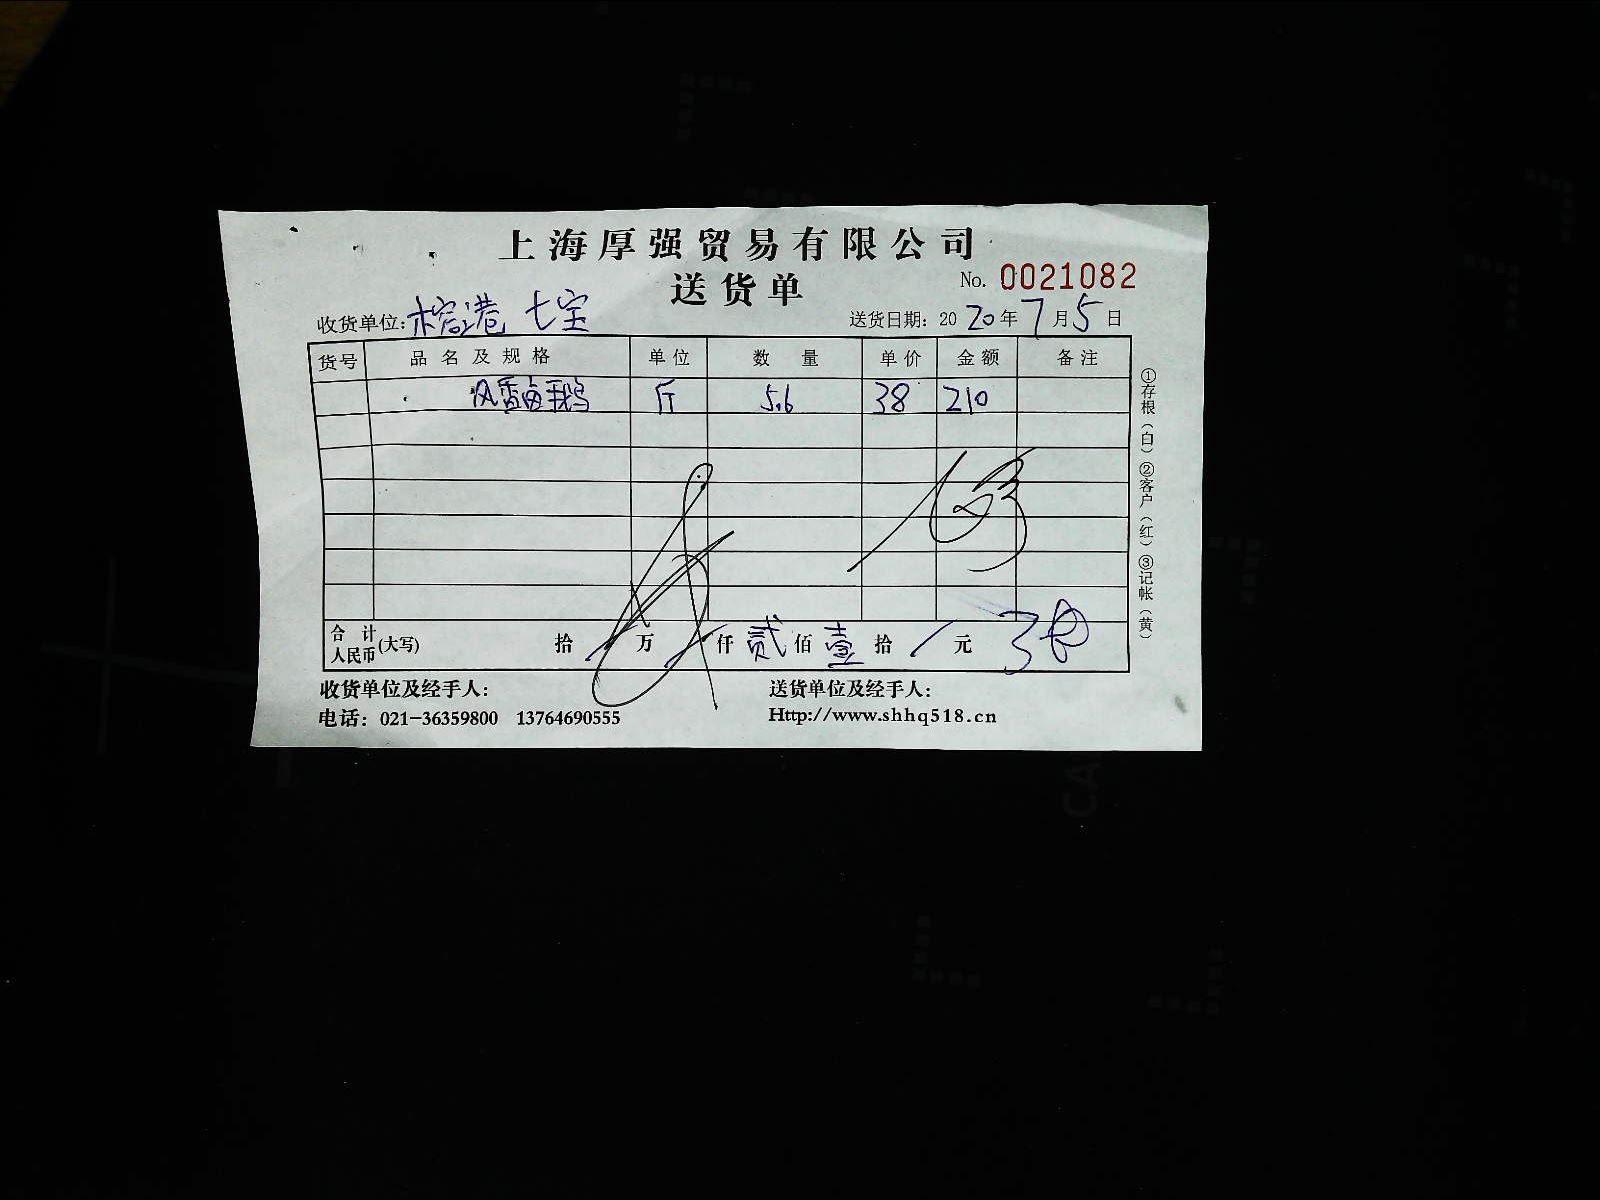 上海厚强贸易有限公司
送货单
No. 0021082
收货单位:榕港 七宝
送货日期: 2020年7月5日
货号 品名及规格 单位 数量 单价 金额 备注
风香卤鹅 斤 5.6 38 210
①存根(白)②客户(红)③记帐(黄)
合计人民币(大写) 拾 / 万 / 仟 贰 佰 壹 拾 / 元
收货单位及经手人: 送货单位及经手人:
电话: 021-36359800 13764690555 Http://www.shhq518.cn